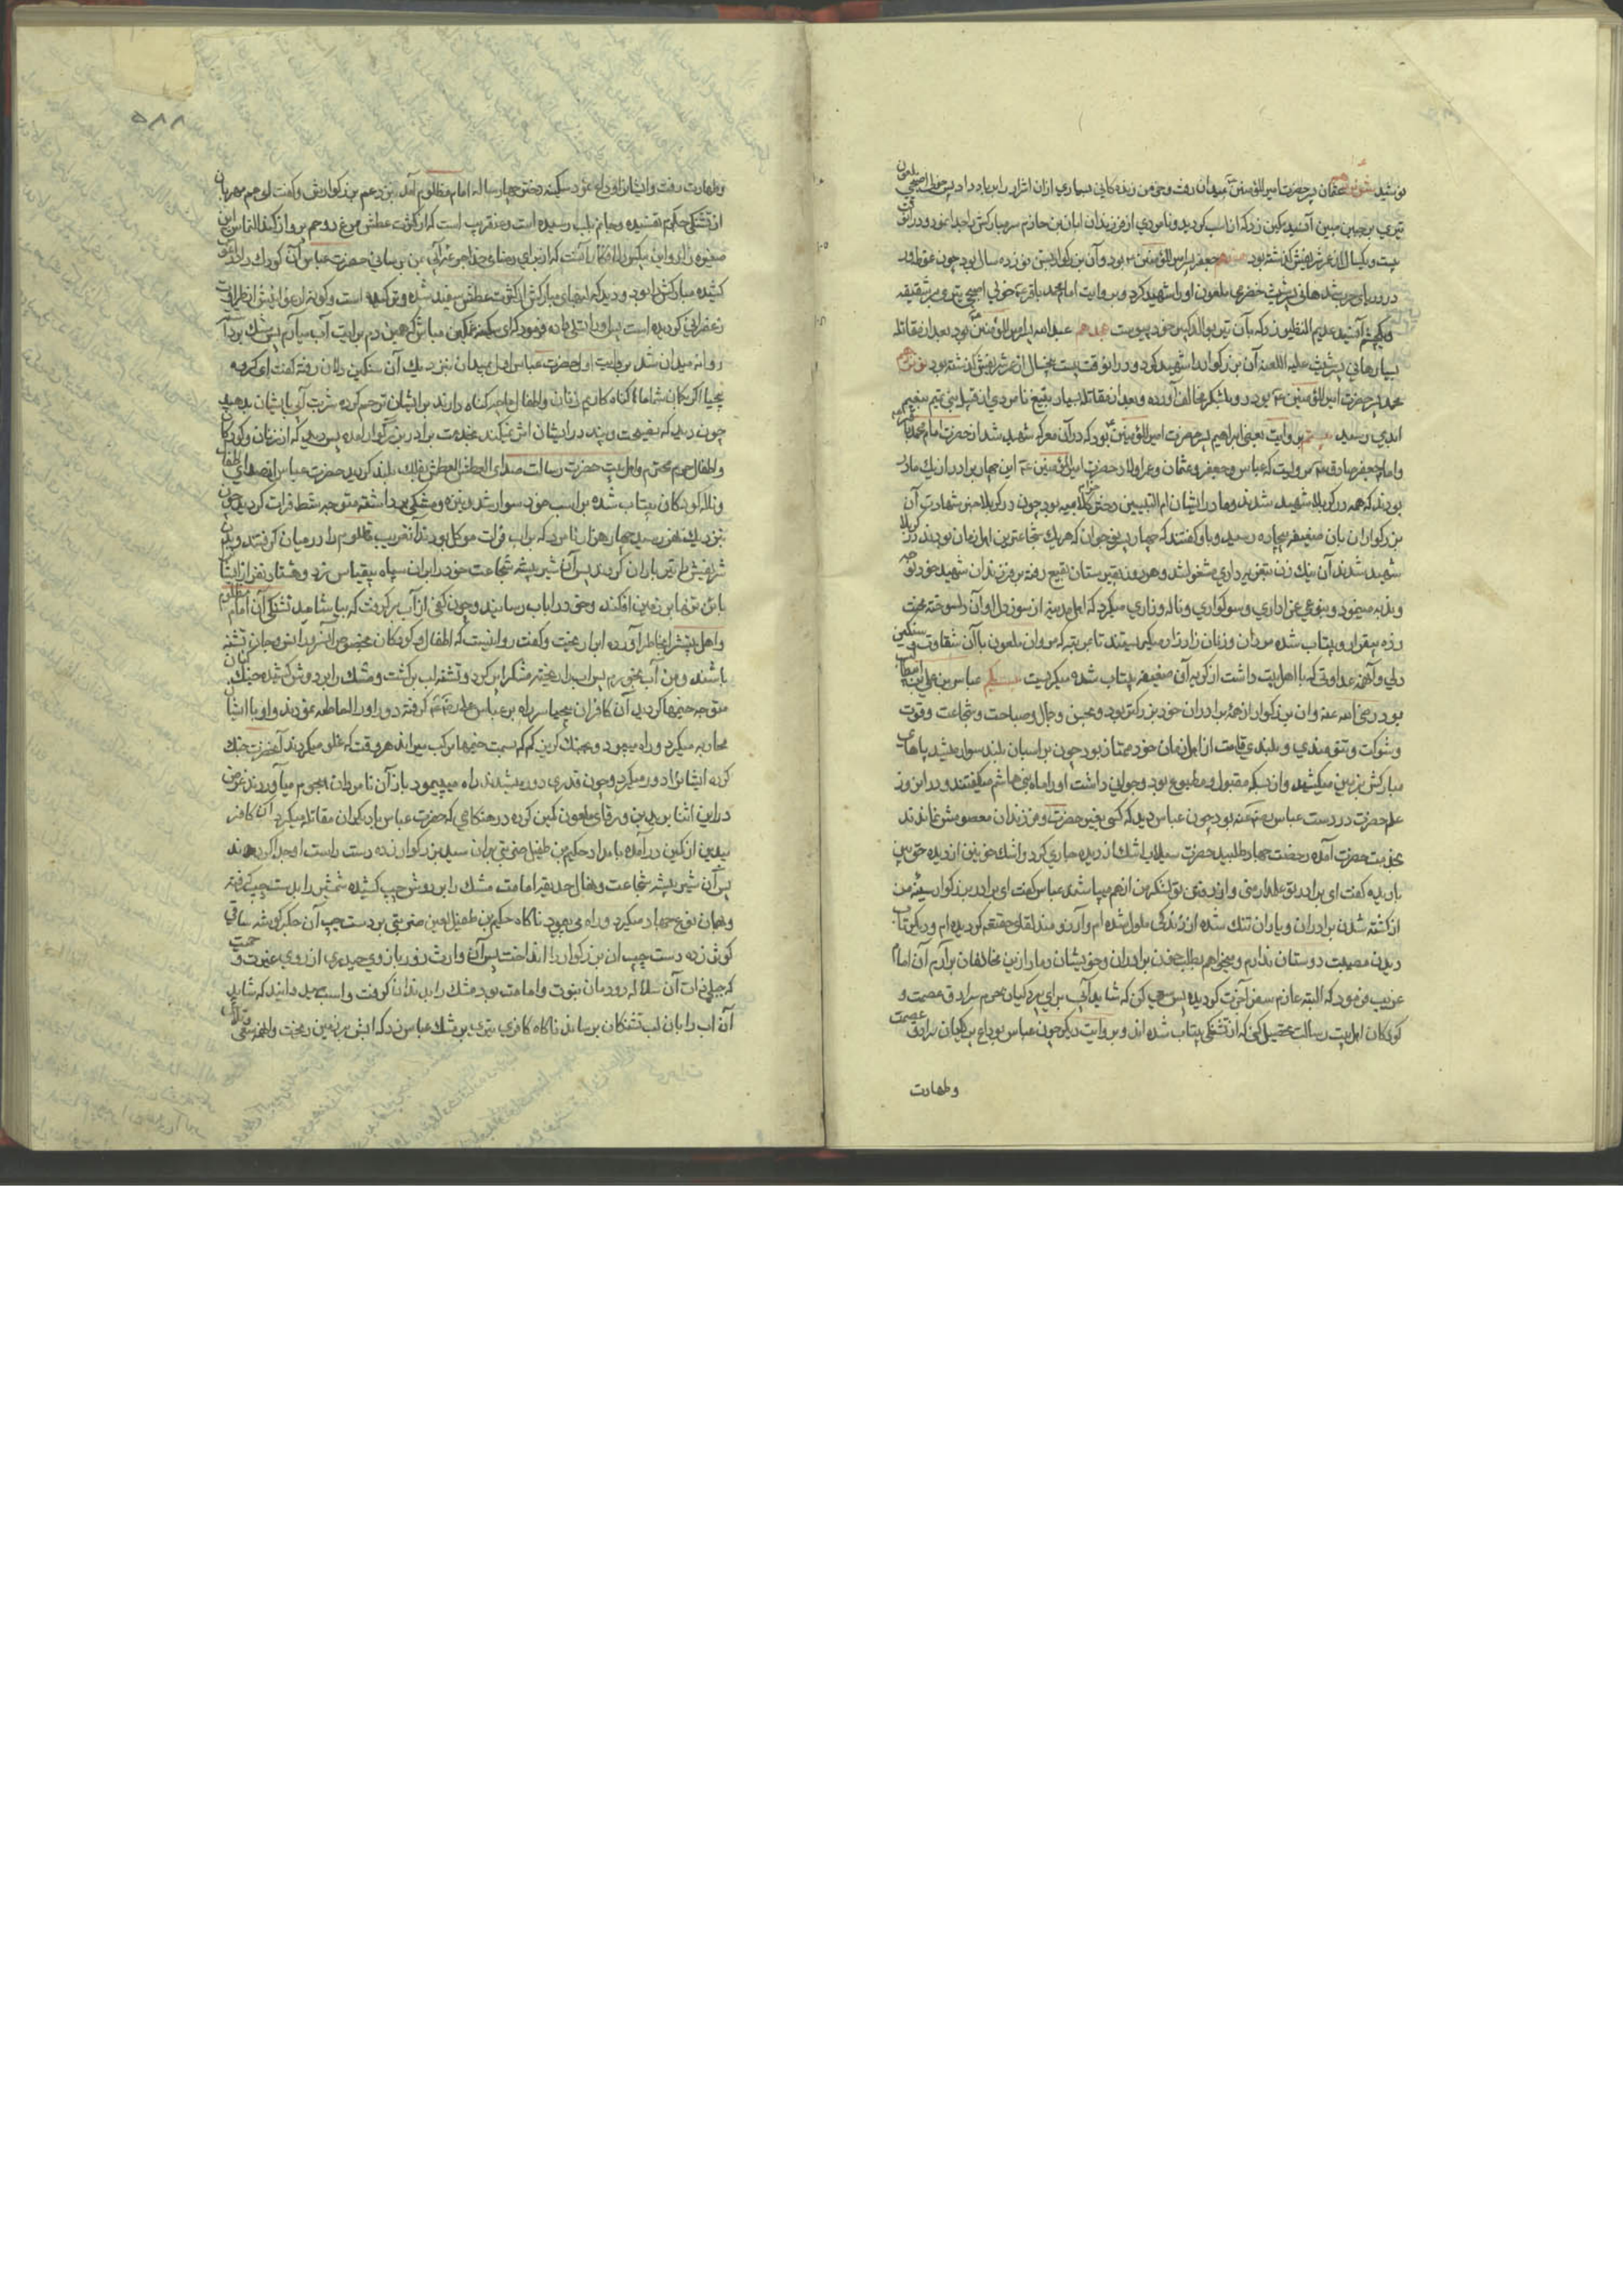 نوشید شانزدهم عثمان پسر حضرت امیرالمؤمنین بمیدان رفت و خرمن زندگانی بسیاری ازان اشرار را بباد داد پس خولی اصبحی ملعون
تیری بر جبین مبین آن سید کبیر زد که از اسب گردید و نامردی از فرزندان ابان بن حازم سر مبارکش را جدا نمود و در ان وقت
بیست و یکسال از عمر شریفش گذشته بود هفدهم جعفر پسر امیرالمؤمنین بود و آن بزرگوار بسن نوزده سال بود چون غوطه ور
در دریای حرب شد هانی بن ثبیت حضرمی ملعون او را شهید کرد و بروایت امام محمد باقر ع خولی اصبحی تیری بر شقیقه
و یا چشم آن سید عدیم النظیر زد که بآن تیر بوالد کبیر خود پیوست هجدهم عبدالله پسر امیرالمؤمنین بود بعد از مقاتله
بسیار هانی بن ثبیت علیه اللعنه آن بزرگوار را شهید کرد و در انوقت بیست و پنجسال از عمر شریفش گذشته بود نوزدهم
محمد پسر حضرت امیرالمؤمنین ع بود رو بلشکر مخالف آورده و بعد از مقاتله بسیار بتیغ نامردی از قبیله بنی تمیم بنعیم
ابدی رسید بیستم بروایت بعضی ابراهیم پسر حضرت امیرالمؤمنین بود که در آن معرکه شهید شد از حضرت امام محمد باقر
و امام جعفر صادق ع مرویست که عباس و جعفر و عثمان و عمر اولاد حضرت امیرالمؤمنین ع این چهار برادر از یک مادر
بودند که همه در کربلا شهید شدند و مادر ایشان ام البنین دختر حزام کلابیه بود چون در کربلا خبر شهادت آن
بزرگواران بان ضعیفه بیچاره رسید و باو گفتند که چهار پسر نوجوان که هر یک شجاعترین اهل زمان بودند در کربلا
شهید شدند آن نیک زن بتعزیه داری مشغول شد و هر روز بقبرستان بقیع رفته بر فرزندان شهید خود نوحه
و ندبه مینمود و بنوعی عزاداری و سوکواری و ناله و زاری میکرد که اهل مدینه از سوز دل او آن دلسوخته محنت
زده بیقرار و بیتاب شده مردان و زنان زار زار میگریستند تا مرتبه که مروان ملعون با آن شقاوت و سنگین
دلی و آنهمه عداوتی که با اهل بیت داشت از گریه آن ضعیفه بیتاب شده میگریست بیست یکم عباس بن علی بن ابیطالب
بود رضی الله عنه و ان بزرگوار از همه برادران خود بزرگتر بود و بحسن و جمال و صباحت و شجاعت و قوت
و شوکت و تنومندی و بلندی قامت از اهل زمان خود ممتاز بود چون بر اسبان بلند سوار میشد پاهای
مبارکش بر زمین میکشید و از بسکه مقبول و مطبوع بود و جمالی داشت او را ماه بنی هاشم میگفتند و در این روز
علم حضرت در دست عباس رضی عنه بود چون عباس دید که کسی بغیر حضرت و فرزندان معصومش نماندند
بخدمت حضرت آمده رخصت جهاد طلبید حضرت سیلاب اشک از دیده جاری کرد و اشک خونین از دیده حق بین
باریده گفت ای برادر تو علمدار منی و از رفتن تو لشکر من از هم میپاشد عباس گفت ای برادر بزرگوار سینه من
از کشته شدن برادران و یاران تنک شده از زندگی ملول شده ام و آرزومند لقای حقتعالی گردیده ام و دیگر تاب
دیدن مصیبت دوستان ندارم و میخواهم بطلب خون برادران و خویشان دمار ازین مخالفان برآرم آن امام
غریب فرمود که البته عازم سفر آخرت گردیده پس سعی کن که شاید آبی برای پردگیان محرم سرادق عصمت و
کودکان اهل بیت رسالت تحصیل کنی که از تشنگی بیتاب شده اند و بروایت دیگر چون عباس بوداع پردگیان سرادق عصمت
و طهارت
٥٨٨
و طهارت رفت و ایشان را وداع نمود سکینه دختر چهار ساله امام مظلوم آمد نزد عم بزرگوارش و گفت ای عم مهربان
از تشنگی جگرم تفتیده و جانم بلب رسیده است و عنقریب است که از کثرت عطش مرغ روحم پرواز کند التماس این
صغیره زار و این بیکس دلفکار آنست که از برای رضای خدا جرعه آبی بمن برسانی حضرت عباس آن کودک را در آغوش
کشیده مبارکش را بود و دید که لبهای مبارکش از کثرت عطش سفید شده و ترکیده است و گونه ارغوانیش از حرارت
زعفرانی گردیده است پس او را تسلی داده فرمود که ای سکینه غمگین مباش که همین دم برایت آب میآرم پس مشک برداشته
روانه میدان شد بروایت اول حضرت عباس اول بمیدان نزدیک آن سنگین دلان رفته گفت ای گروه
بیحیا اگر بگمان شما ما گناه کاریم زنان و اطفال ما چه گناه دارند بر ایشان ترحم کرده شربت آبی بایشان بدهید
چون دید که نصیحت و پند در ایشان اثر نمیکند بخدمت برادر بزرگوار آمده پس دید که از زنان و کودکان
و اطفال حرم محترم و اهل بیت حضرت رسالت صدای العطش العطش بفلک بلند گردید حضرت عباس از صدای اطفال
و ناله کودکان بیتاب شده بر اسب خود سوار شد و نیزه و مشکی برداشته متوجه شط فرات گردید چون
نزدیک نهر رسید چهار هزار نامرد که بر اب فرات موکل بودند آن غریب مظلوم را در میان گرفتند و بدن
شریفش را تیر باران کردند پس آن شیر بیشه شجاعت خود را بران سپاه بیقیاس زد و هشتاد نفر از ایشان
باتن تنها بر زمین افکند و خود را باب رسانید و چون کفی از آب برگرفت که بیاشامد تشنگی آن امام مظلوم
و اهل بیتش را بخاطر آورده اب را بریخت و گفت روا نیست که اطفال و کودکان مخصوص ان سرور انس و جان تشنه
باشند و من آب بخورم پس اب را ریخته مشک را پر کرد و تشنه لب برگشت و مشک را بر دوش کشیده جنگ کنان
متوجه خیمها گردید آن کافران بیحیا سر راه بر عباس گرفته دور او را احاطه نمودند و او با ایشان
محاربه میکرد و راه میپیمود و بجنک گریز کم کم بسمت خیمها مرکب میراند هر وقت که غلو میکردند آنحضرت جنک
کرده ایشانرا دور میکرد و چون قدری دور میشدند راه میپیمود باز آن نامردان هجوم میآوردند غرض
در این اثنا یزید بن ورقای ملعون کمین کرده در هنگامی که حضرت عباس با دیگران مقاتله میکرد آن کافر
بیدین از کمین درآمده بامداد حکیم بن طفیل ضربتی بران سید بزرگوار زده دست راست او جدا کردند
پس آن شیر بیشه شجاعت و نهال حدیقه امامت مشک را بر دوش چپ کشیده شمشیر را بدست چپ گرفته
و بهمان نوع جهاد میکرد و راه می پیمود ناگاه حکیم بن طفیل لعین ضربتی بر دست چپ آن جگرگوشه ساقی
کوثر زده دست چپ ان بزرگوار را انداخت پس آن وارث زور بازوی حیدری از روی غیرت و حمیت
که جبلی ذات آن سلاله دودمان نبوت و امامت بود مشک را بدندان گرفت و اسب میدوانید که شاید
آن اب را بان لب تشنگان برساند ناگاه کافری تیری بر مشک عباس زد که ابش بر زمین ریخت و